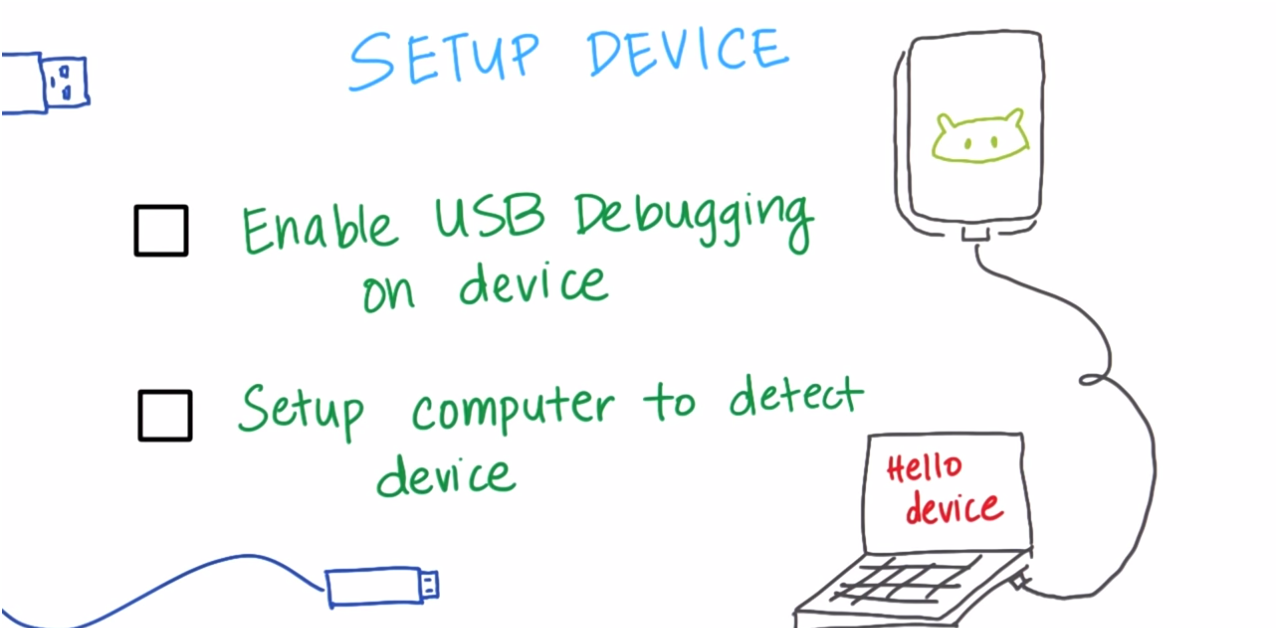 SETUP DEVICE
Enable USB Debugging
on device
Setup computer to detect
device
Hello
device